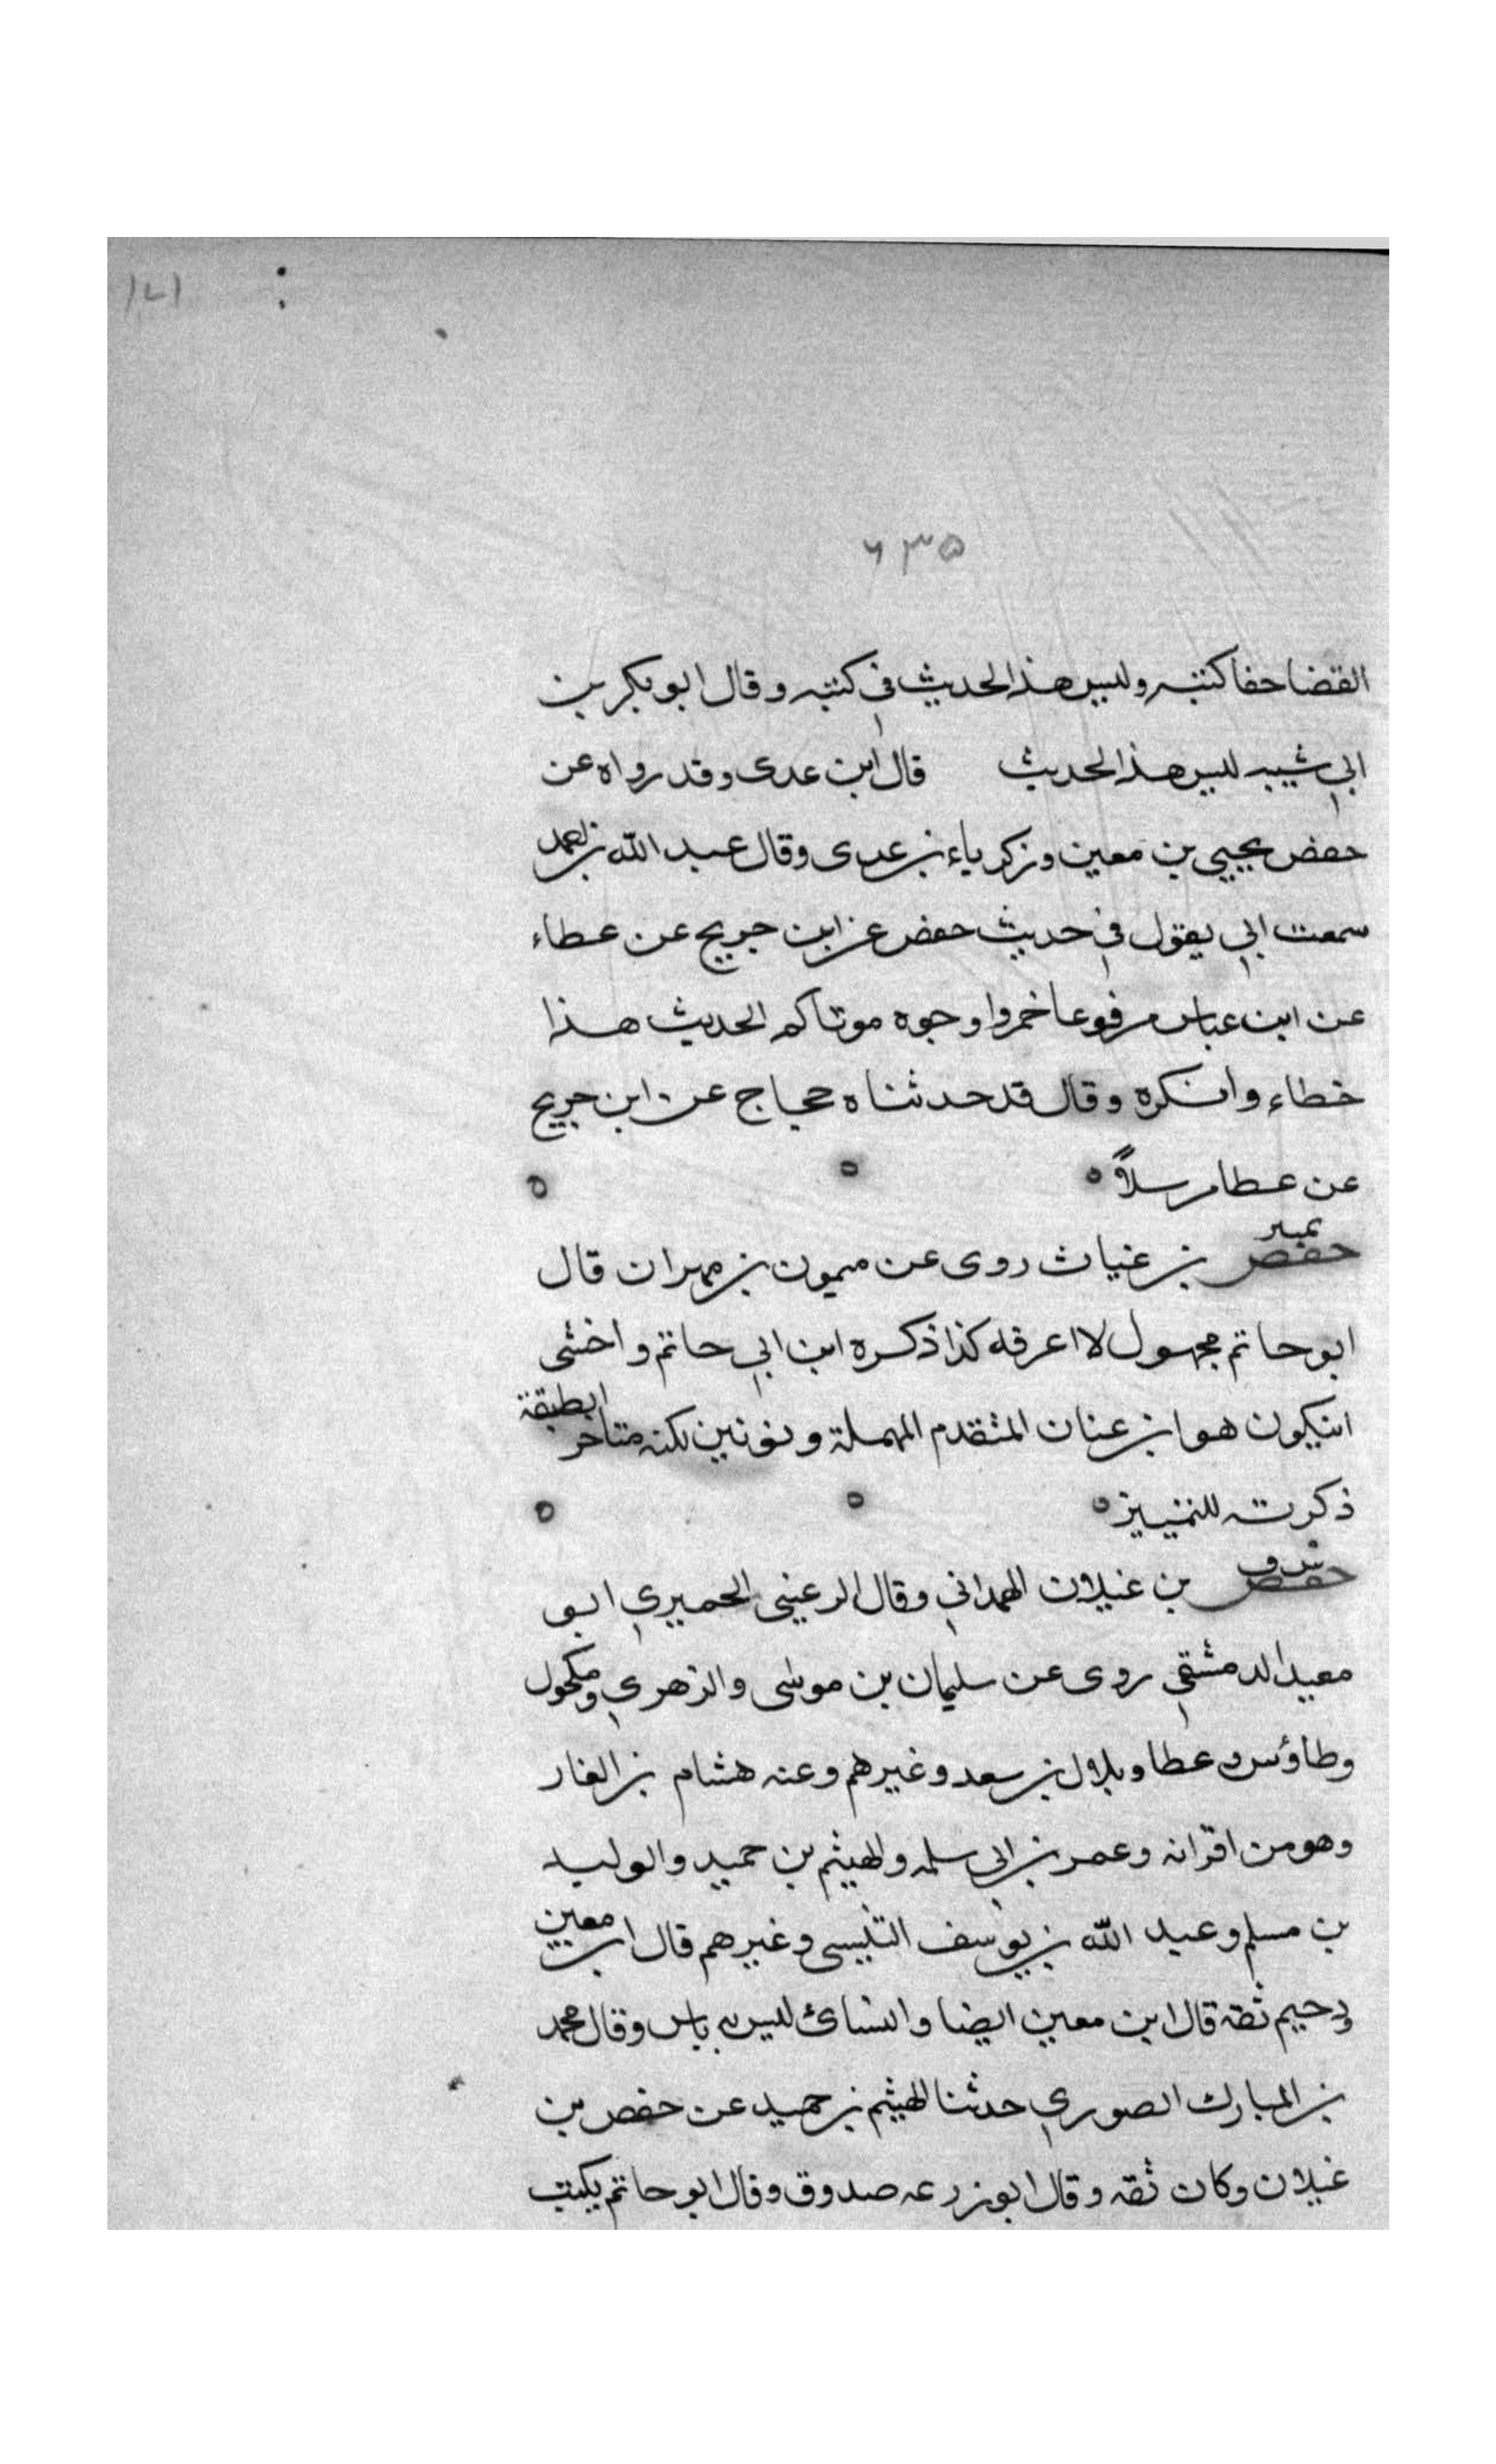 ۱۲۱
۶۳۵
القضا حفا كتبه وليس هذا الحديث في كتبه وقال ابو بكر بن
ابي شيبه ليس هذا الحديث قال ابن عدى وقد رواه عن
حفص يحيي بن معين وزكرياء بن عدى وقال عبد الله بن احمد
سمعت ابي يقول في حديث حفص عن ابن جريج عن عطاء
عن ابن عباس مرفوعا خمروا وجوه موتاكم الحديث هذا
خطاء وانكره وقال قد حدثناه حجاج عن ابن جريج
عن عطا مرسلاً
تمييز
حفص بن غياث روى عن ميمون بن مهران قال
ابو حاتم مجهول لا اعرفه كذا ذكره ابن ابي حاتم واخشى
انيكون هو ابن عنان المتقدم المهملة ونونين لكنه متاخر الطبقة
ذكرته للتمييز
حفص بن غيلان الهمداني وقال الرعيني الحميري ابو
معيد الدمشقي روى عن سليمان بن موسى والزهري ومكحول
وطاؤس وعطا وبلال بن سعد وغيرهم وعنه هشام بن الغار
وهو من اقرانه وعمر بن ابي سلمه والهيثم بن حميد والوليد
بن مسلم وعبد الله بن يوسف التنيسى وغيرهم قال ابن معين
ودحيم ثقه قال ابن معين ايضا والنسائ ليس به باس وقال محمد
بن المبارك الصوري حدثنا الهيثم بن حميد عن حفص بن
غيلان وكان ثقه وقال ابو زرعه صدوق وقال ابو حاتم يكتب